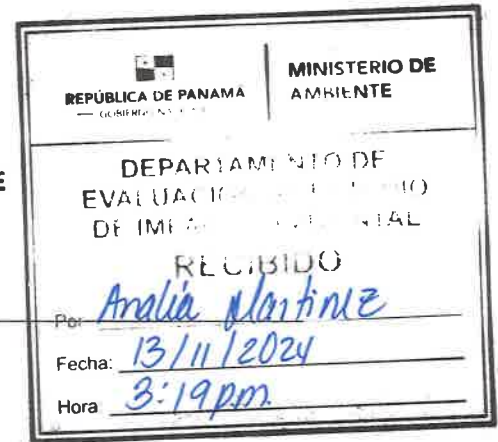 REPÚBLICA DE PANAMÁ
MINISTERIO DE
AMBIENTE
DEPARTAMENTO DE
DE
RECIBIDO
Por: Analia Martinez
Fecha: 13/11/2024
Hora 3:19 p.m.